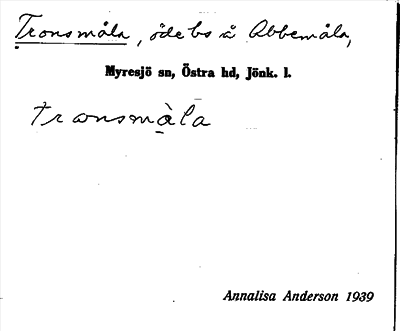 Tronsmåla, öde bs å Abbemåla,
Myresjö sn, Östra hd, Jönk. l.
tronsmå̀la
Annalisa Anderson 1939